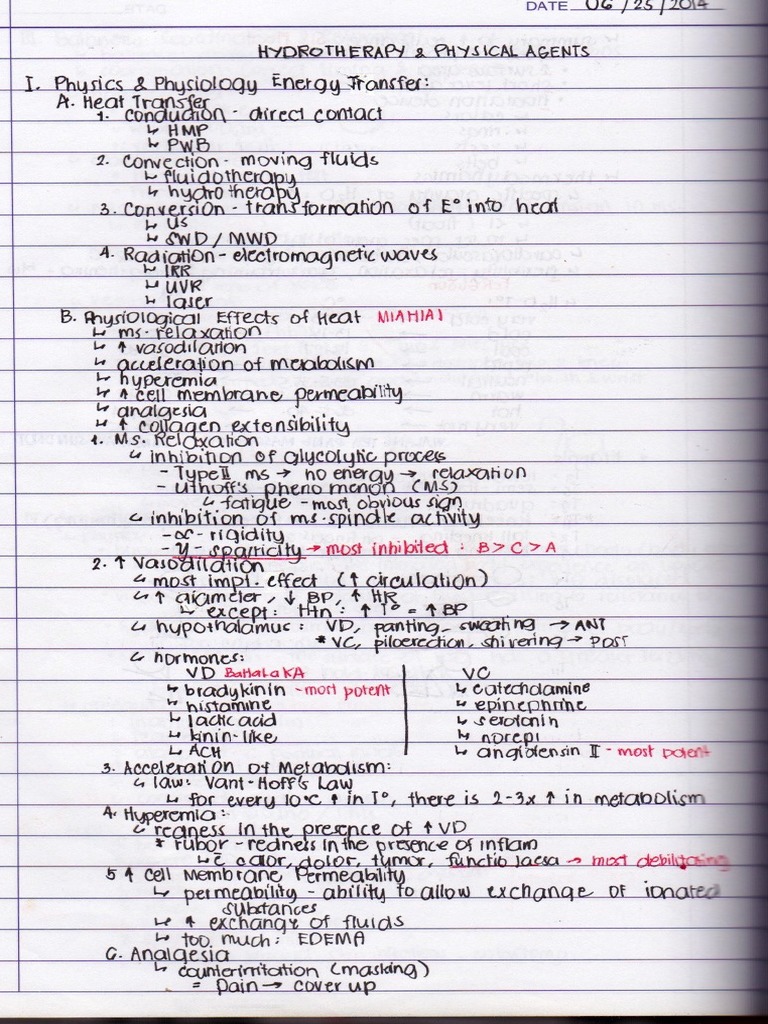 DATE 06/25/2014
HYDROTHERAPY & PHYSICAL AGENTS
I. Physics & Physiology Energy Transfer:
A. Heat Transfer
1. Conduction - direct contact
↳ HMP
↳ PWB
2. Convection - moving fluids
↳ fluidotherapy
↳ hydrotherapy
3. Conversion - transformation of E° into heat
↳ US
↳ SWD / MWD
4. Radiation - electromagnetic waves
↳ IRR
↳ UVR
↳ laser
B. Physiological Effects of Heat MIAHIAI
↳ ms. relaxation
↳ ↑ vasodilation
↳ acceleration of metabolism
↳ hyperemia
↳ ↑ cell membrane permeability
↳ analgesia
↳ ↑ collagen extensibility
1. Ms. Relaxation
↳ inhibition of glycolytic process
- Type II ms → no energy → relaxation
- Uthoff's phenomenon (MS)
↳ fatigue - most obvious sign
↳ inhibition of ms. spindle activity
- α - rigidity
- γ - sparticity → most inhibited : B > C > A
2. ↑ Vasodilation
↳ most impt. effect (↑ circulation)
↳ ↑ diameter, ↓ BP, ↑ HR
↳ except: HTN: ↑ T° = ↑ BP
↳ hypothalamus: VD, panting, sweating → ANT
* VC, piloerection, shivering → POST
↳ hormones:
VD BaHaLaKA VC
↳ bradykinin - most potent ↳ catecholamine
↳ histamine ↳ epinephrine
↳ lactic acid ↳ serotonin
↳ kinin-like ↳ norepi
↳ ACH ↳ angiotensin II - most potent
3. Acceleration of Metabolism:
↳ law: Vant-Hoff's Law
↳ for every 10°C ↑ in T°, there is 2-3x ↑ in metabolism
4. Hyperemia:
↳ redness in the presence of ↑ VD
* rubor - redness in the presence of inflam
↳ c̄ calor, dolor, tumor, functio laesa → most debilitating
5 ↑ Cell Membrane Permeability
↳ permeability - ability to allow exchange of ionated
substances
↳ ↑ exchange of fluids
↳ too much: EDEMA
6. Analgesia
↳ counterirritation (masking)
= Pain → cover up